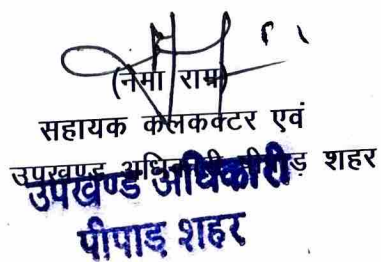 (नेमा राम)
सहायक कलकक्टर एवं
उपखण्ड अधिकारी पीपाड़ शहर
उपखण्ड अधिकारी
पीपाड़ शहर